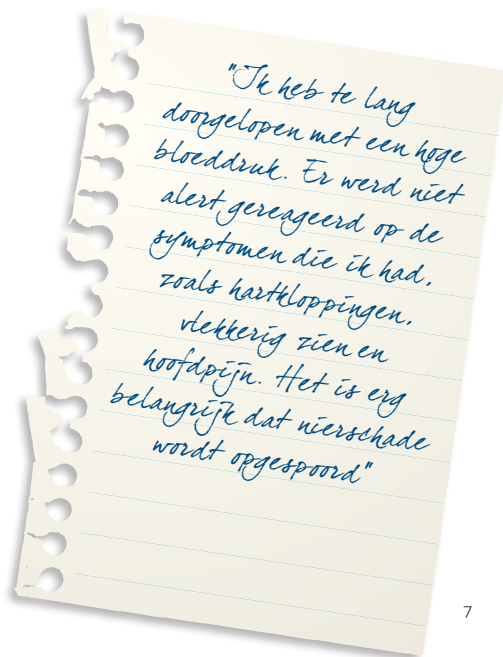 "Ik heb te lang
doorgelopen met een hoge
bloeddruk. Er werd niet
alert gereageerd op de
symptomen die ik had,
zoals hartkloppingen,
vlekkerig zien en
hoofdpijn. Het is erg
belangrijk dat nierschade
wordt opgespoord"
7